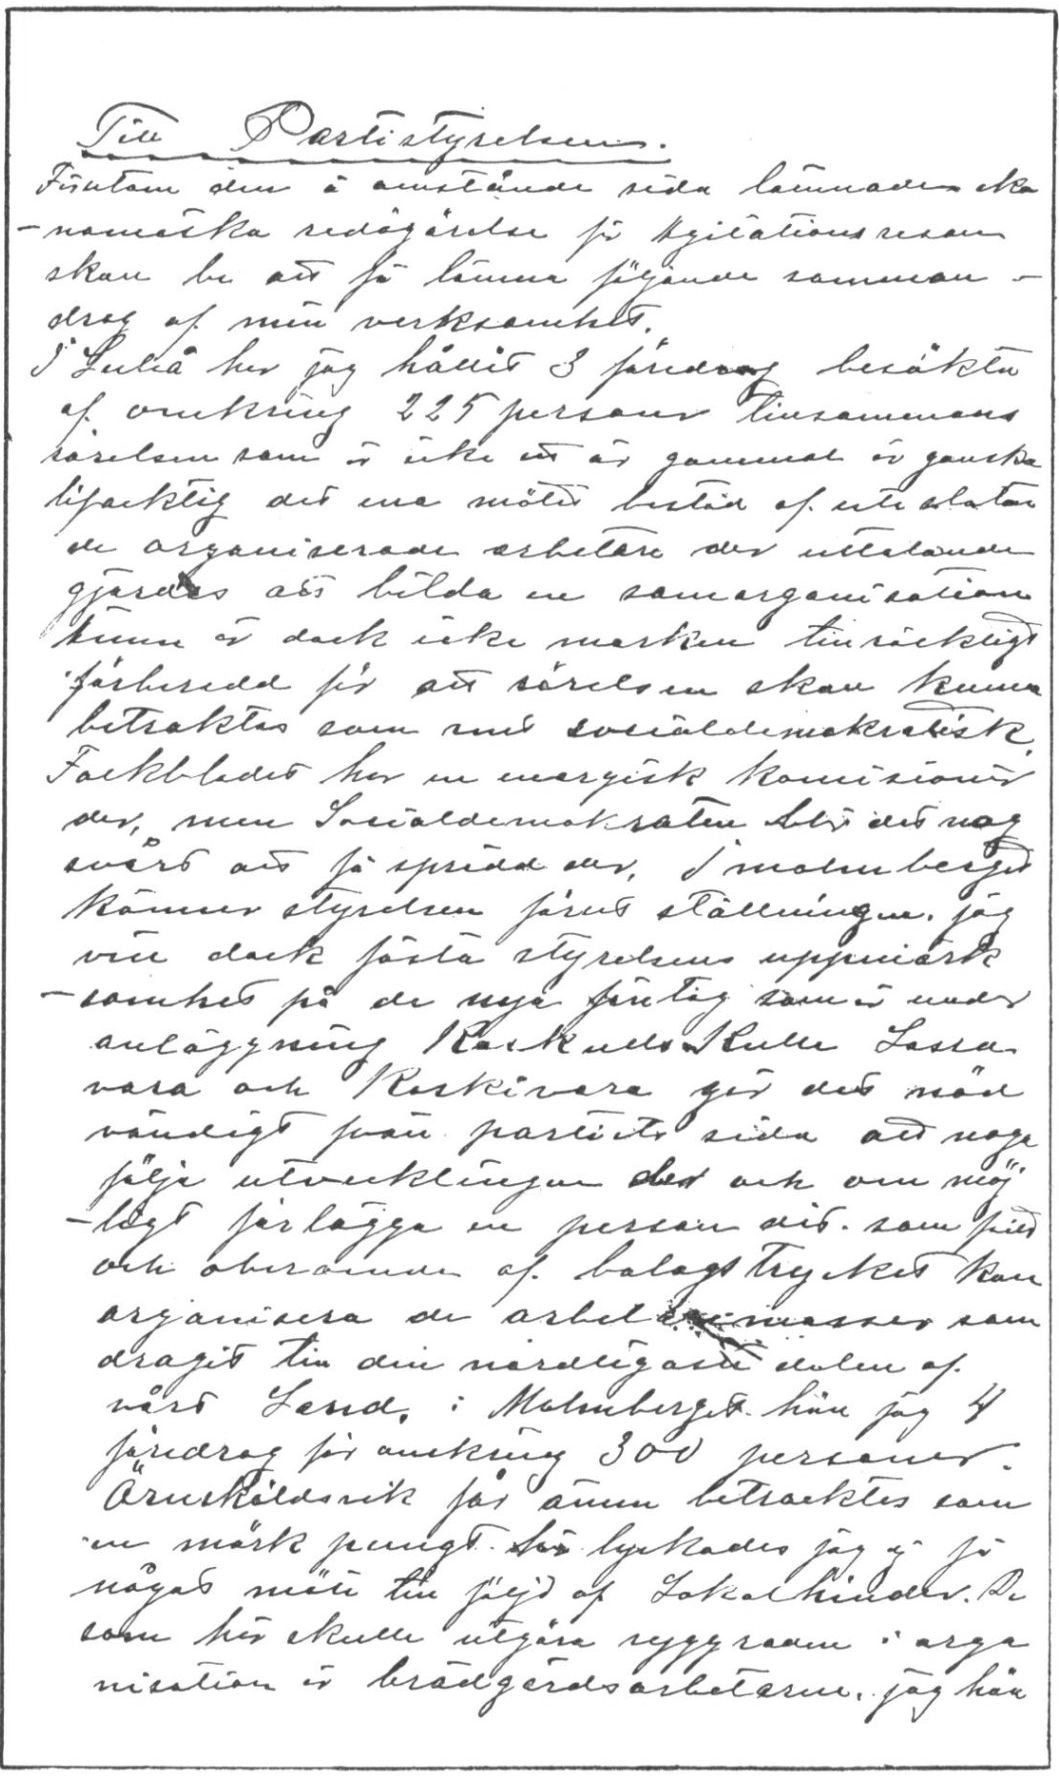 Till Partistyrelsen.
Förutom den å omstående sida lämnade eko
-nomiska redogörelse för Agitationsresan
skall be att få lämna följande samman-
drag af min verksamhet.
I Luleå har jag hållit 3 föredrag besökta
af omkring 225 personer tillsammans
rörelsen som är icke ett år gammal är ganska
lifaktig det ena mötet bestod af uteslutan
de organiserade arbetare der uttalande
gjordes att bilda en samorganisation
ännu är dock icke marken tillräckligt
förberedd för att rörelsen skall kunna
betraktas som med socialdemokratisk.
Folkbladet har en energisk komisionär
der, men Socialdemokraten blir det nog
svårt att få spridd der, I malmberget
känner styrelsen förut ställningen. jag
vill dock fästa styrelsens uppmärk
-samhet på de nya företag som är under
anläggning Koskullskulle Lassa
vara och Koskivara gör det nöd
vändigt från partiets sida att noga
följa utvecklingen der och om möj
-ligt förlägga en person dit. som fritt
och oberoende af. bolagstrycket kan
organisera de arbetaremassor som
dragit till den nordligaste delen af.
vårt Land. i Malmberget höll jag 4
föredrag för omkring 300 personer.
Örnsköldsvik får ännu betracktas som
en mörk pungt. här lyckades jag ej få
något möte till följd af Lokalhinder. De
som här skulle utgöra ryggraden i orga
nisation är brädgårdsarbetarne. jag höll